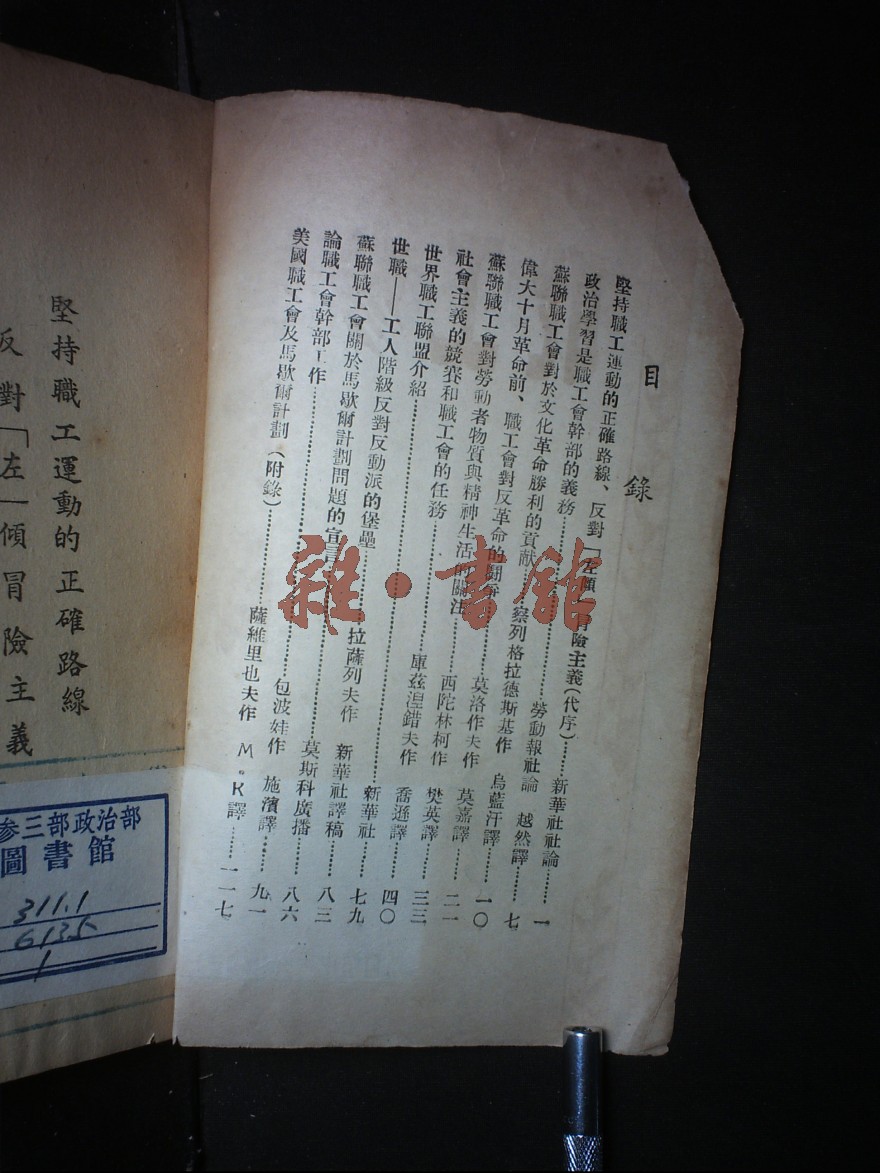 目錄
堅持職工運動的正確路線、反對「左傾」冒險主義(代序)……新華社社論……一
政治學習是職工會幹部的義務……勞動報社論 越然譯……七
蘇聯職工會對於文化革命勝利的貢獻……察列格拉德斯基作 烏藍汗譯……一〇
偉大十月革命前、職工會對反革命的鬪爭……莫洛作夫作 莫嘉譯……二一
蘇聯職工會對勞動者物質與精神生活的關注……西陀林柯作 樊英譯……三三
社會主義的競賽和職工會的任務……庫茲湼錯夫作 喬遜譯……四〇
世界職工聯盟介紹……新華社……七九
世職——工人階級反對反動派的堡壘……拉薩列夫作 新華社譯稿……八三
蘇聯職工會關於馬歇爾計劃問題的宣言……莫斯科廣播……八六
論職工會幹部工作……包波娃作 施濱譯……九一
美國職工會及馬歇爾計劃(附錄)……薩維里也夫作 M·R譯……一一七
堅持職工運動的正確路線
反對「左」傾冒險主義
参三部政治部
圖書館
311.1
613.5
1
雜·書館